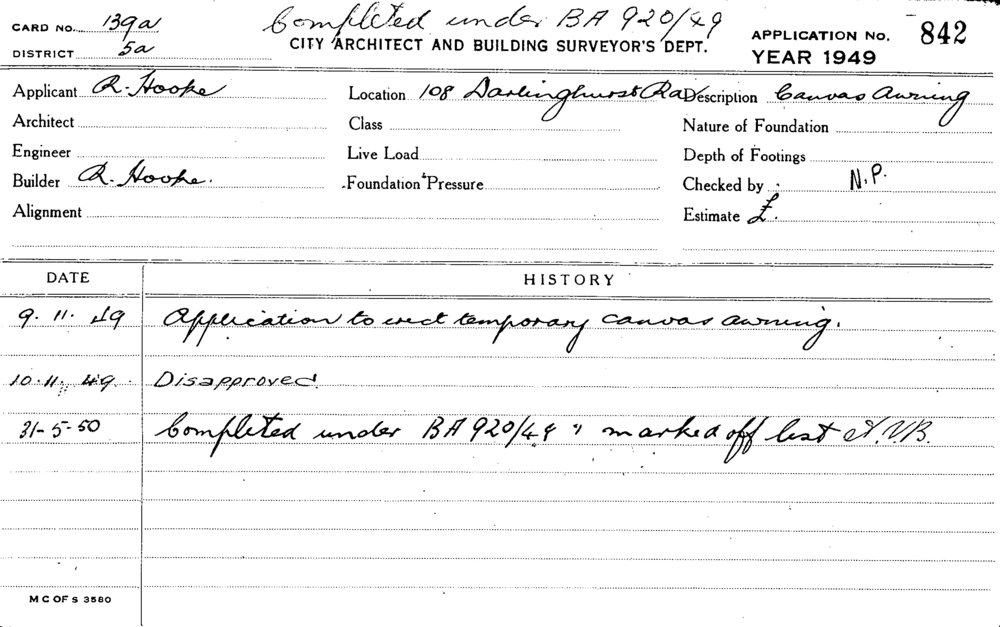 Completed under BA 920/49
CARD NO. 139a
DISTRICT 5a
CITY ARCHITECT AND BUILDING SURVEYOR'S DEPT.
APPLICATION NO. 842
YEAR 1949
Applicant R. Hooke Location 108 Darlinghurst Rd Description Canvas Awning
Architect Class Nature of Foundation
Engineer Live Load Depth of Footings
Builder R. Hooke. Foundation Pressure Checked by N.P.
Alignment Estimate £.
DATE HISTORY
9. 11. 49 Application to erect temporary canvas awning.
10.11.49. Disapproved
31-5-50 Completed under BA 920/49 " marked off list A.V.B.
M C OF S 3580